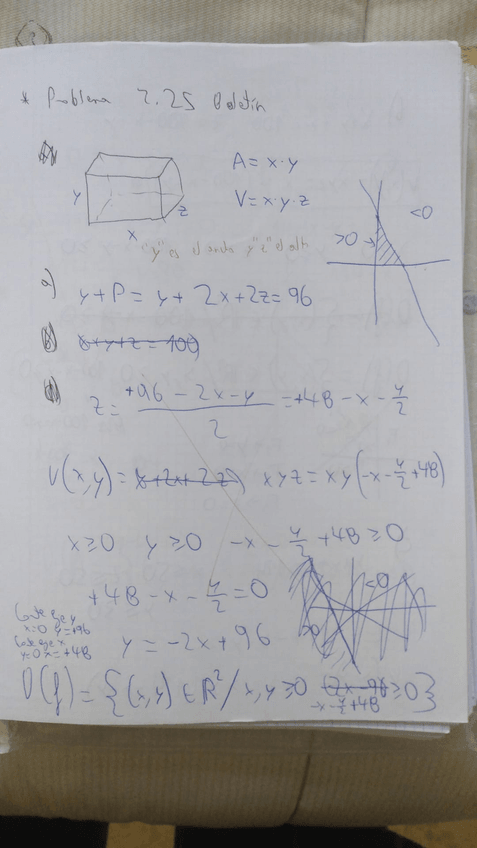 * Problema 2.25 Boletín
A = x·y
V = x·y·z
y
x
z
<0
>0
"y" es el ancho y "z" el alto
a) y + P = y + 2x + 2z = 96
x+y+z = 100
z = +96 - 2x - y / 2 = +48 - x - y/2
V(x,y) = x+2x+2z xyz = xy(-x - y/2 + 48)
x≥0 y≥0 -x - y/2 + 48 ≥ 0
+48 - x - y/2 = 0
<0
>0
Corte eje y
x=0 y=+96
Corte eje x
y=0 x=+48
y = -2x + 96
D(f) = {(x,y) ∈ ℝ² / x,y ≥0 -2x-96 ≥0}
-x - y/2 + 48